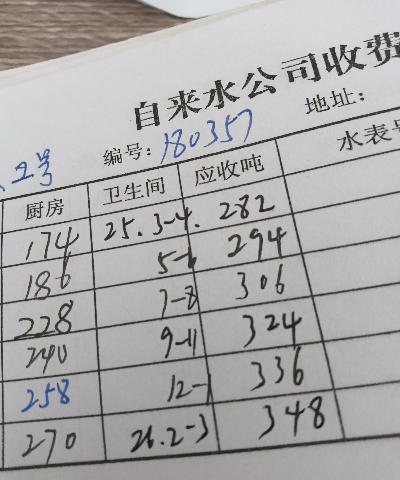 自来水公司收费
2号
编号: 180357
地址:
厨房 卫生间 应收吨 水表号
174 25.3-4. 282
186 5-6 294
228 7-8 306
240 9-11 324
258 12-1 336
270 26.2-3 348